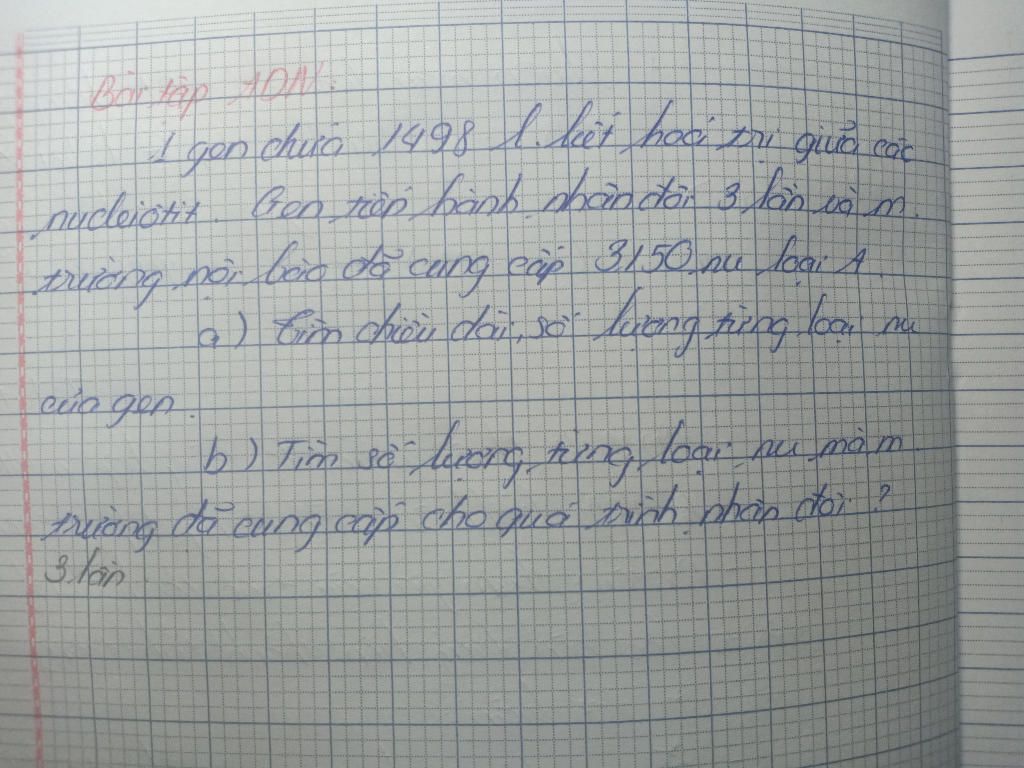 Bài tập ADN:
1 gen chứa 1498 l.kết hoá trị giữa các
nucleiôtit. Gen tiến hành nhân đôi 3 lần và m.
trường nội bào đã cung cấp 3150 nu loại A
a) Tìm chiều dài, số lượng từng loại nu
của gen.
b) Tìm số lượng từng loại nu mà m.
trường đã cung cấp cho quá trình nhân đôi?
3 lần